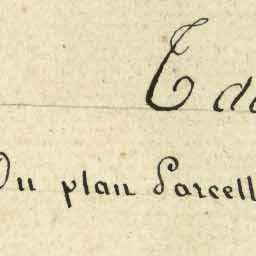 Du plan Parcell